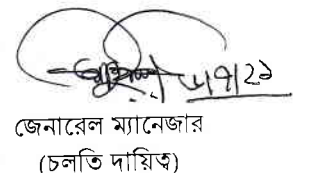 ৮/৭/২১
জেনারেল ম্যানেজার
(চলতি দায়িত্ব)